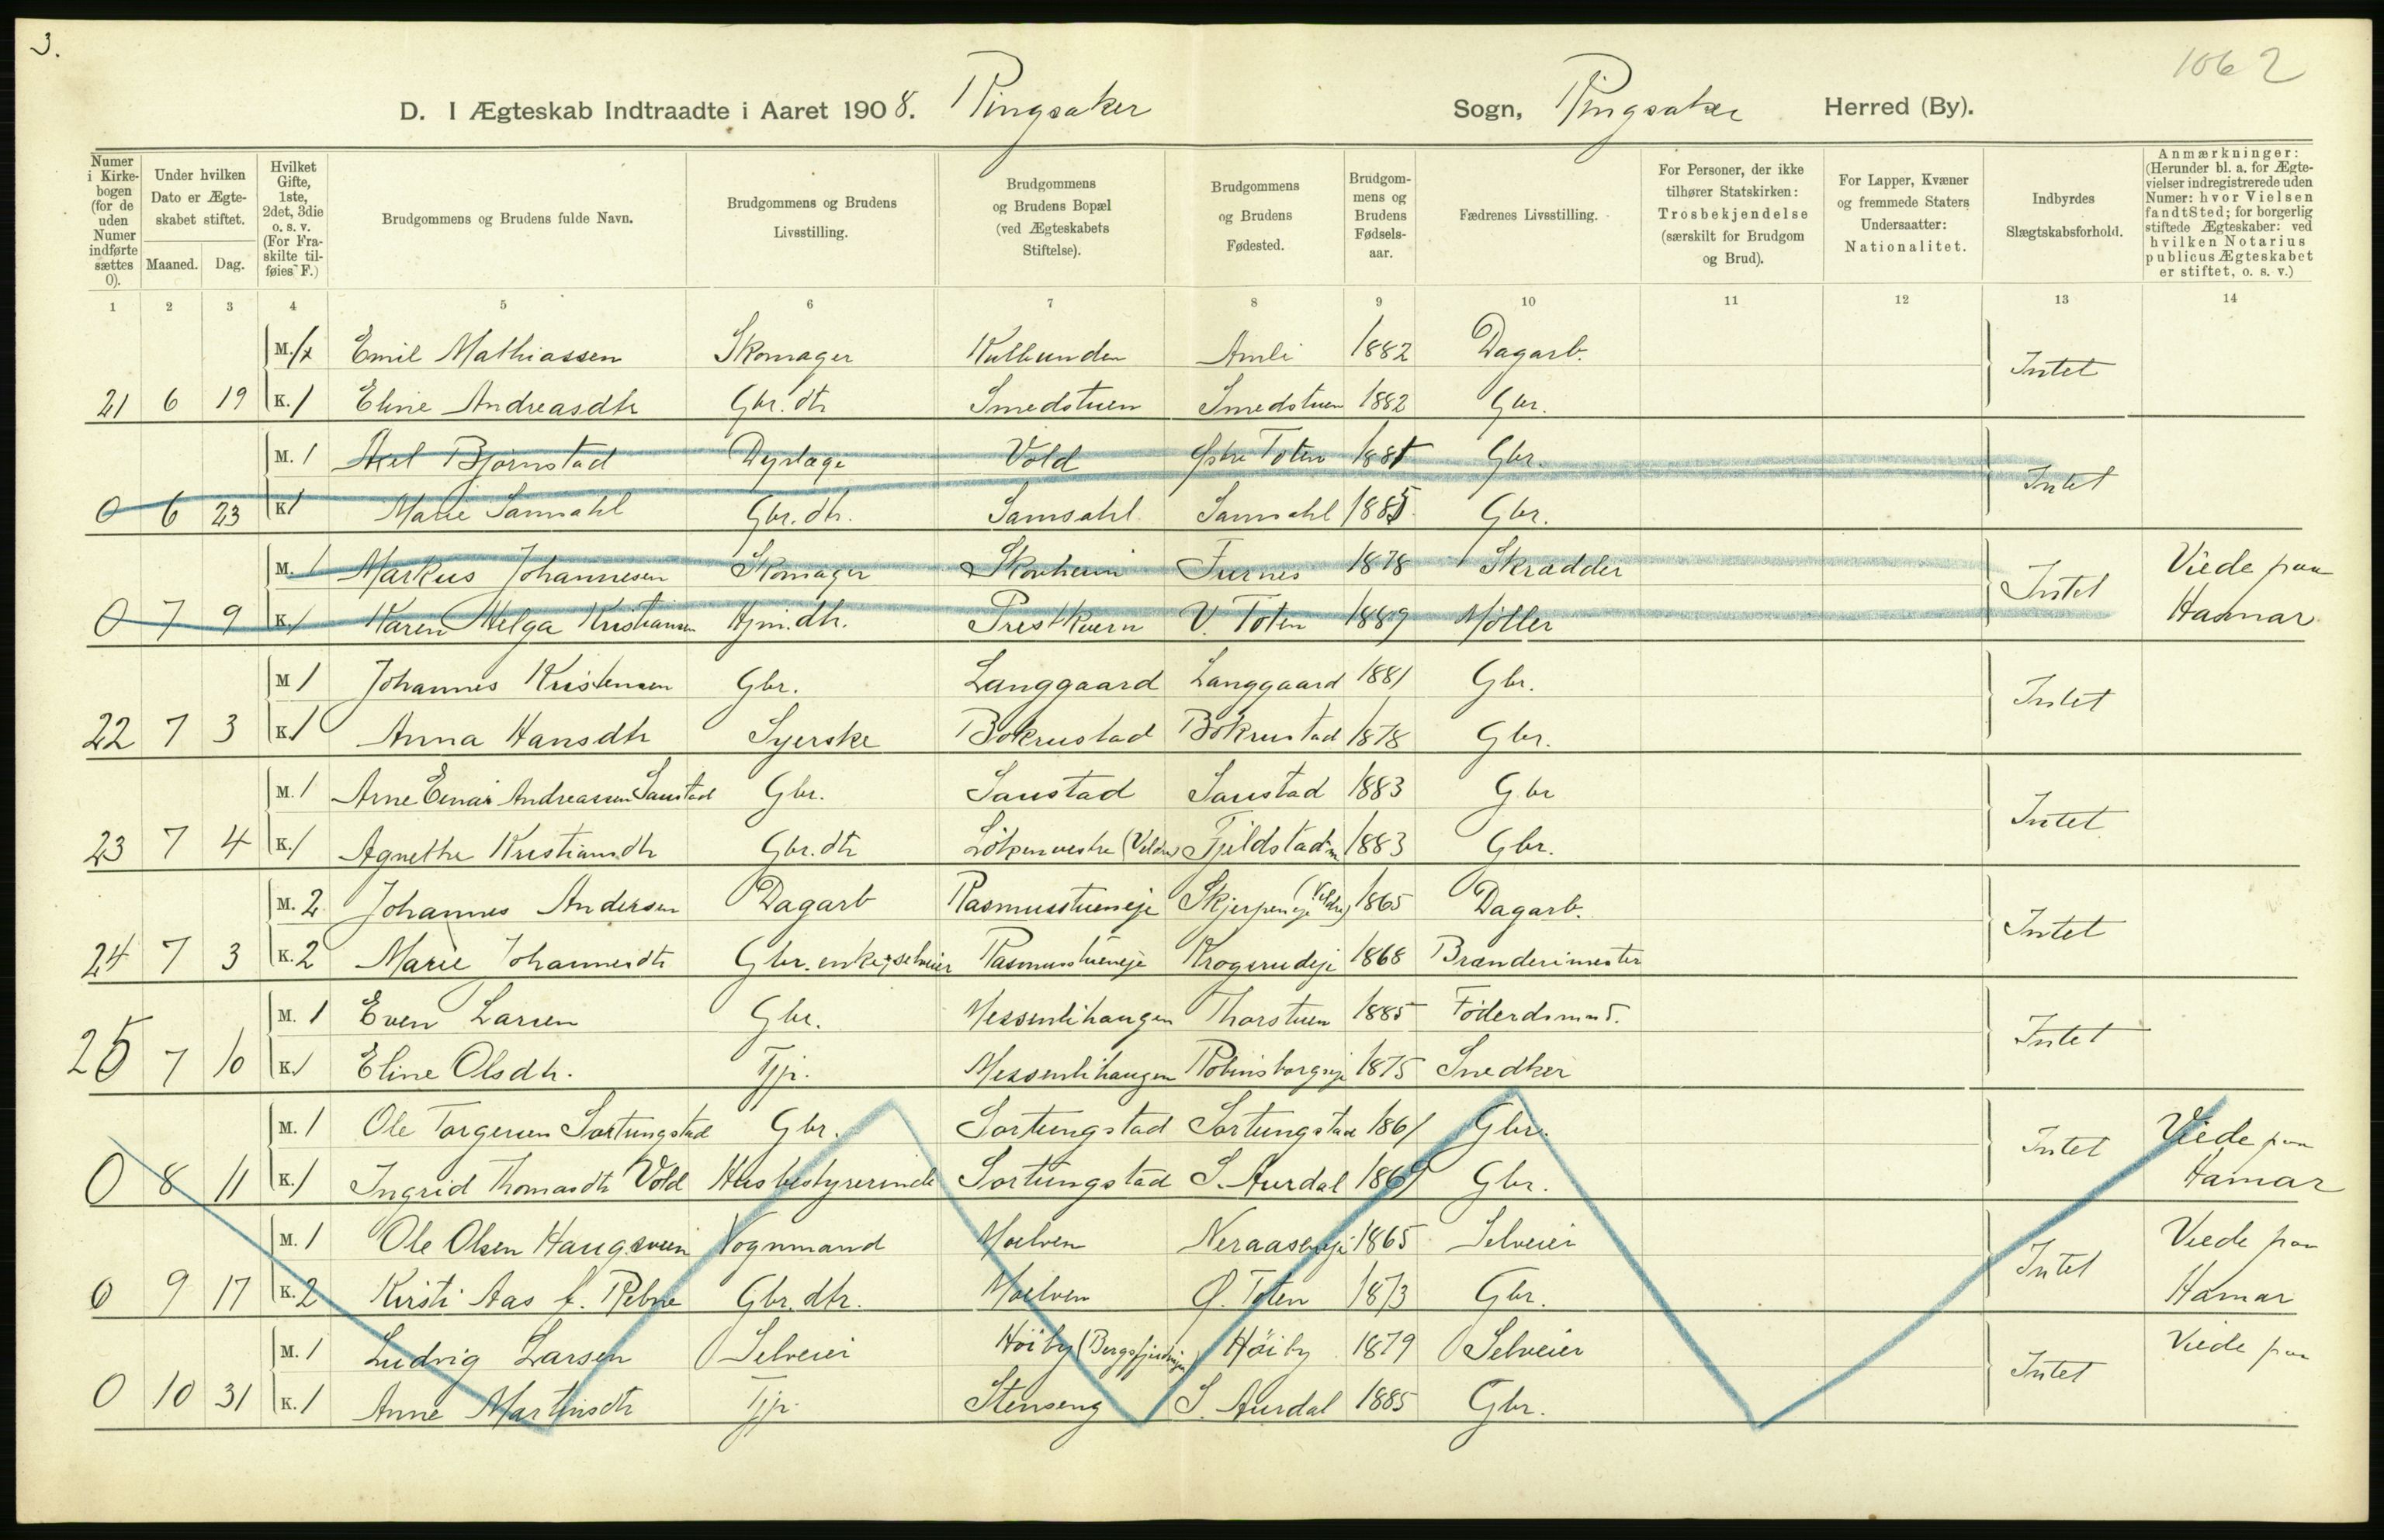 3.
1062
D. I Ægteskab Indtraadte i Aaret 1908. Ringsaker Sogn, Ringsaker Herred (By).
Numer i Kirke-bogen (for de uden Numer indførte sættes 0).
Under hvilken Dato er Ægte-skabet stiftet.
Maaned. Dag.
Hvilket Gifte, 1ste, 2det, 3die o. s. v. (For Fra-skilte til-føies F.)
Brudgommens og Brudens fulde Navn.
Brudgommens og Brudens Livsstilling.
Brudgommens og Brudens Bopæl (ved Ægteskabets Stiftelse).
Brudgommens og Brudens Fødested.
Brudgom-mens og Brudens Fødsels-aar.
Fædrenes Livsstilling.
For Personer, der ikke tilhører Statskirken: Trosbekjendelse (særskilt for Brudgom og Brud).
For Lapper, Kvæner og fremmede Staters Undersaatter: Nationalitet.
Indbyrdes Slægtskabsforhold.
Anmærkninger: (Herunder bl. a. for Ægte-vielser indregistrerede uden Numer: hvor Vielsen fandt Sted; for borgerlig stiftede Ægteskaber: ved hvilken Notarius publicus Ægteskabet er stiftet, o. s. v.)
1 2 3 4 5 6 7 8 9 10 11 12 13 14
M. 1 Emil Mathiassen Skomager Amli 1882 Dagarb. Intet
21 6 19 K. 1 Eline Andreasdtr Gbr. dtr Smedstuen Smedstuen 1882 Gbr.
M. 1 Axel Bjørnstad Dyrlæge Vold Østre Toten 1881 Gbr. Intet
0 6 23 K 1 Marie Samsahl Gbr. dtr. Samsahl Samsahl 1885 Gbr.
M. 1 Markus Johannesen Skomager Skovheim Furnes 1878 Skrædder Intet Viede paa
0 7 9 K. 1 Karen Helga Kristiansen Hjm. dtr. Prestkvern V. Toten 1889 Møller Hamar
M 1 Johannes Kristensen Gbr. Langgaard Langgaard 1881 Gbr. Intet
22 7 3 K. 1 Anna Hansdtr Syerske Bokrustad Bokrustad 1878 Gbr.
M. 1 Arne Einar Andreassen Saustad Gbr. Saustad Saustad 1883 Gbr Intet
23 7 4 K. 1 Agnethe Kristiansdtr Gbr. dtr (Veldre) Fjeldstad 1883 Gbr.
M. 2 Johannes Andersen Dagarb Rasmusstueneje Skjerpeneje (Veldre) 1865 Dagarb. Intet
24 7 3 K. 2 Marie Johannesdtr Gbr. enke, selveier Rasmusstueneje Krogsrudeje 1868 Brænderimester
M. 1 Even Larsen Gbr. Messenlihaugen Thorstuen 1885 Føderdsmand. Intet
25 7 10 K. 1 Eline Olsdtr. Tjp. Messenlihaugen Robinsborgeje 1875 Snedker
M. 1 Ole Torgersen Sortungstad Gbr. Sortungstad Sortungstad 1861 Gbr. Intet Viede paa
0 8 11 K. 1 Ingrid Thomasdtr Vold Husbestyrerinde Sortungstad S. Aurdal 1869 Gbr. Hamar
M. 1 Ole Olsen Haugsveen Vognmand Moelven Neraaseneje 1865 Selveier Intet Viede paa
0 9 17 K. 2 Kirsti Aas f. Rebne Gbr. dtr. Moelven Ø. Toten 1873 Gbr. Hamar
M. 1 Ludvig Larsen Selveier Høiby Høiby 1879 Selveier Intet Viede paa
0 10 31 K. 1 Anne Martinsdtr Tjp. Stenseng S. Aurdal 1885 Gbr.